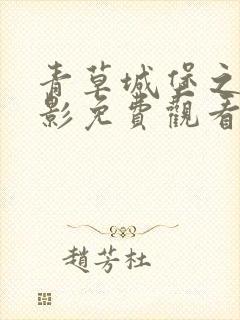 青草城堡之
影免費觀看
趙芳杜